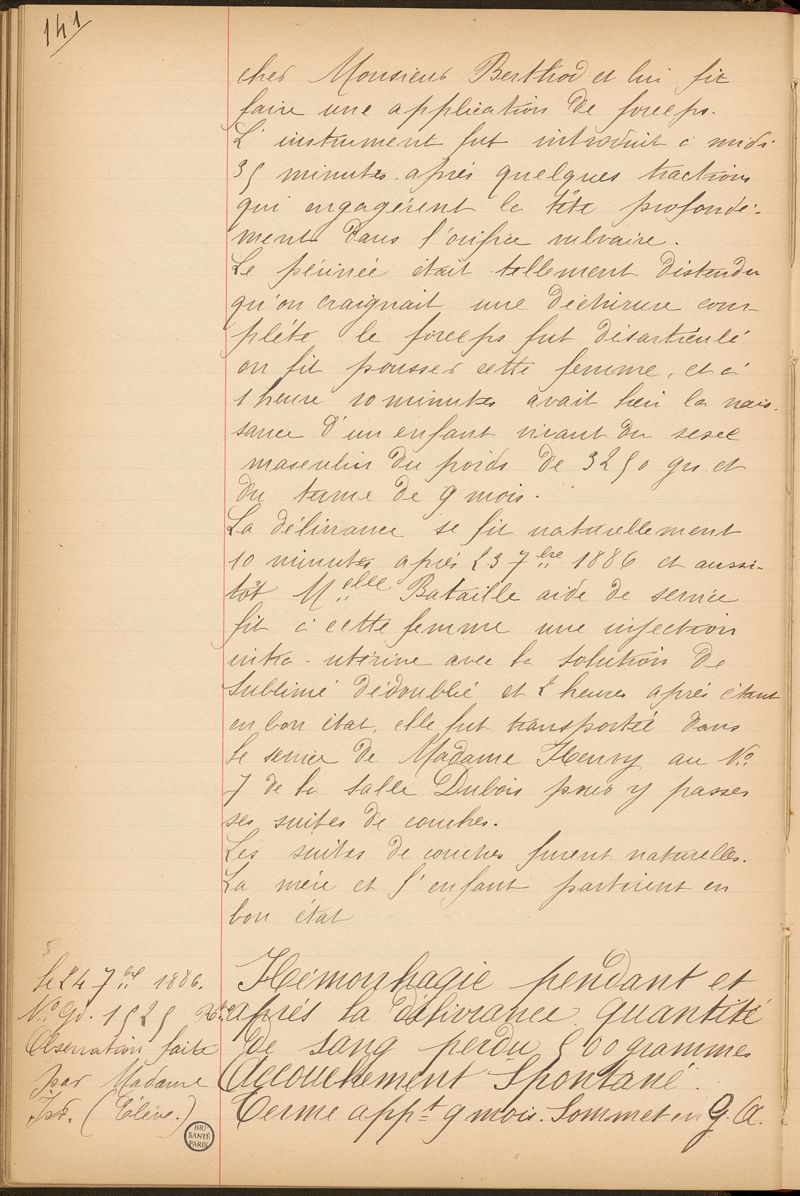 141
cher Monsieur Berthod et lui fit
faire une application de forceps.
L'instrument fut introduit à midi
35 minutes après quelques tractions
qui engagèrent la tête profondé-
ment dans l'orifice vulvaire.
Le périnée était tellement distendu
qu'on craignait une déchirure com-
plète le forceps fut désarticulé
on fit pousser cette femme, et à
1 heure 10 minutes avait lieu la nais-
sance d'un enfant vivant du sexe
masculin du poids de 3250 grs et
du terme de 9 mois.
La délivrance se fit naturellement
10 minutes après 23 7bre 1886 et aussi-
tôt Melle Bataille aide de service
fit à cette femme une injection
intra-utérine avec la solution de
sublimé dédoublé et 2 heures après étant
en bon état, elle fut transportée dans
le service de Madame Henry au No
7 de la salle Dubois pour y passer
ses suites de couches.
Les suites de couches furent naturelles.
La mère et l'enfant partirent en
bon état
le 24 7bre 1886.
No Gd. 1525
Observation faite
par Madame
(Elève.)
Hémorrhagie pendant et
après la délivrance quantité
de sang perdu 500 grammes
Accouchement Spontané.
Terme appt 9 mois. Sommet en G. A.
BIU
SANTÉ
PARIS